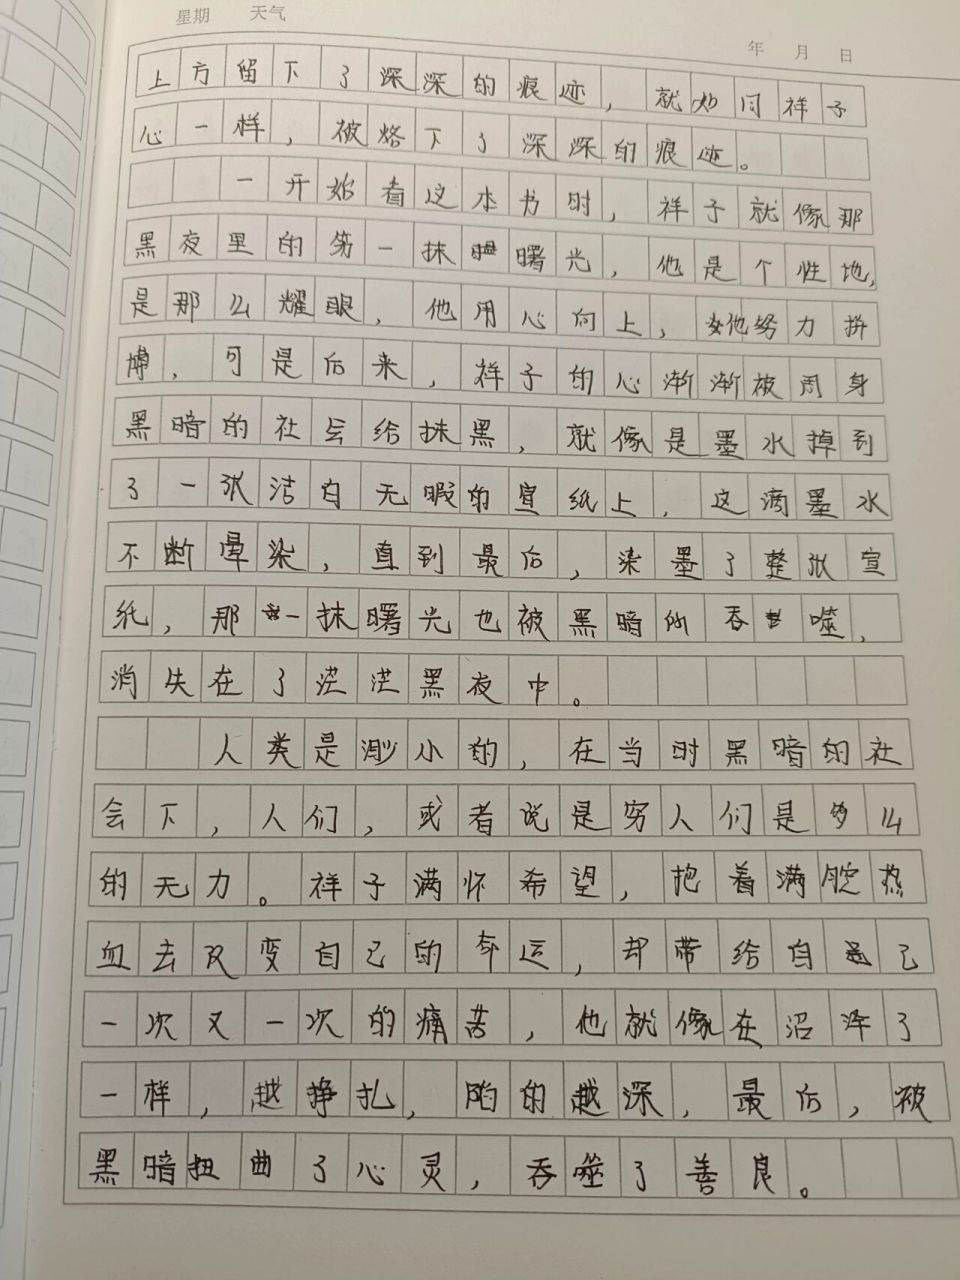 星期 天气
年 月 日
上方留下了深深的痕迹，就如同祥子
心一样，被烙下了深深的痕迹。
一开始看这本书时，祥子就像那
黑夜里的第一抹曙光，他是个性地，
是那么耀眼，他用心向上，他努力拼
博，可是后来，祥子的心渐渐被周身
黑暗的社会给抹黑，就像是墨水掉到
了一张洁白无暇的宣纸上，这滴墨水
不断晕染，直到最后，染墨了整张宣
纸，那一抹曙光也被黑暗的吞噬，
消失在了茫茫黑夜中。
人类是渺小的，在当时黑暗的社
会下，人们，或者说是穷人们是多么
的无力。祥子满怀希望，抱着满腔热
血去改变自己的命运，却带给自己
一次又一次的痛苦，他就像在沼泽了
一样，越挣扎，陷的越深，最后，被
黑暗扭曲了心灵，吞噬了善良。